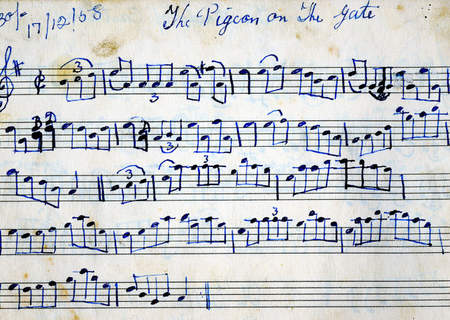 17/12/58 The Pigeon on The Gate
3
3
3
3
3
3
3